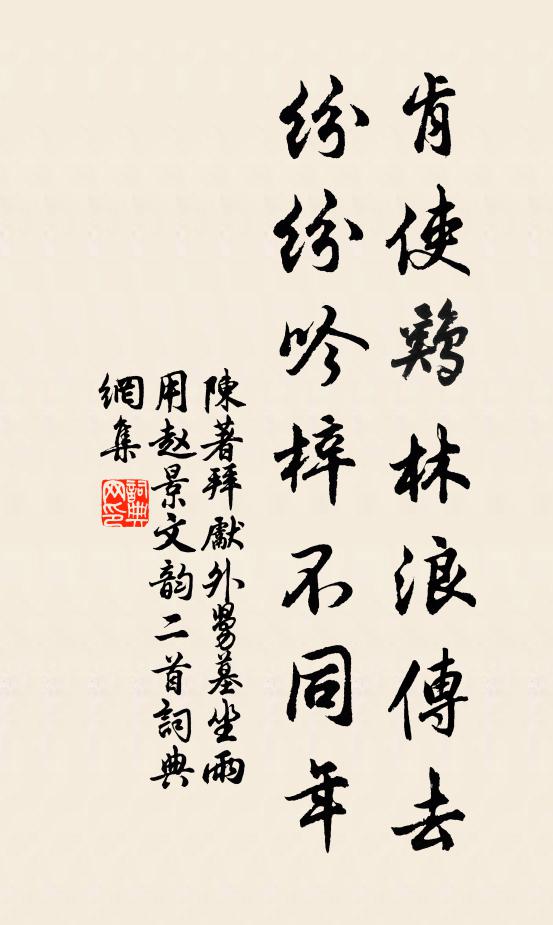 肯使鷄林浪傳去
紛紛吟梓不同年
陳著拜獻外舅墓坐雨
用赵景文韵二首詞典
網集
詞典
网印